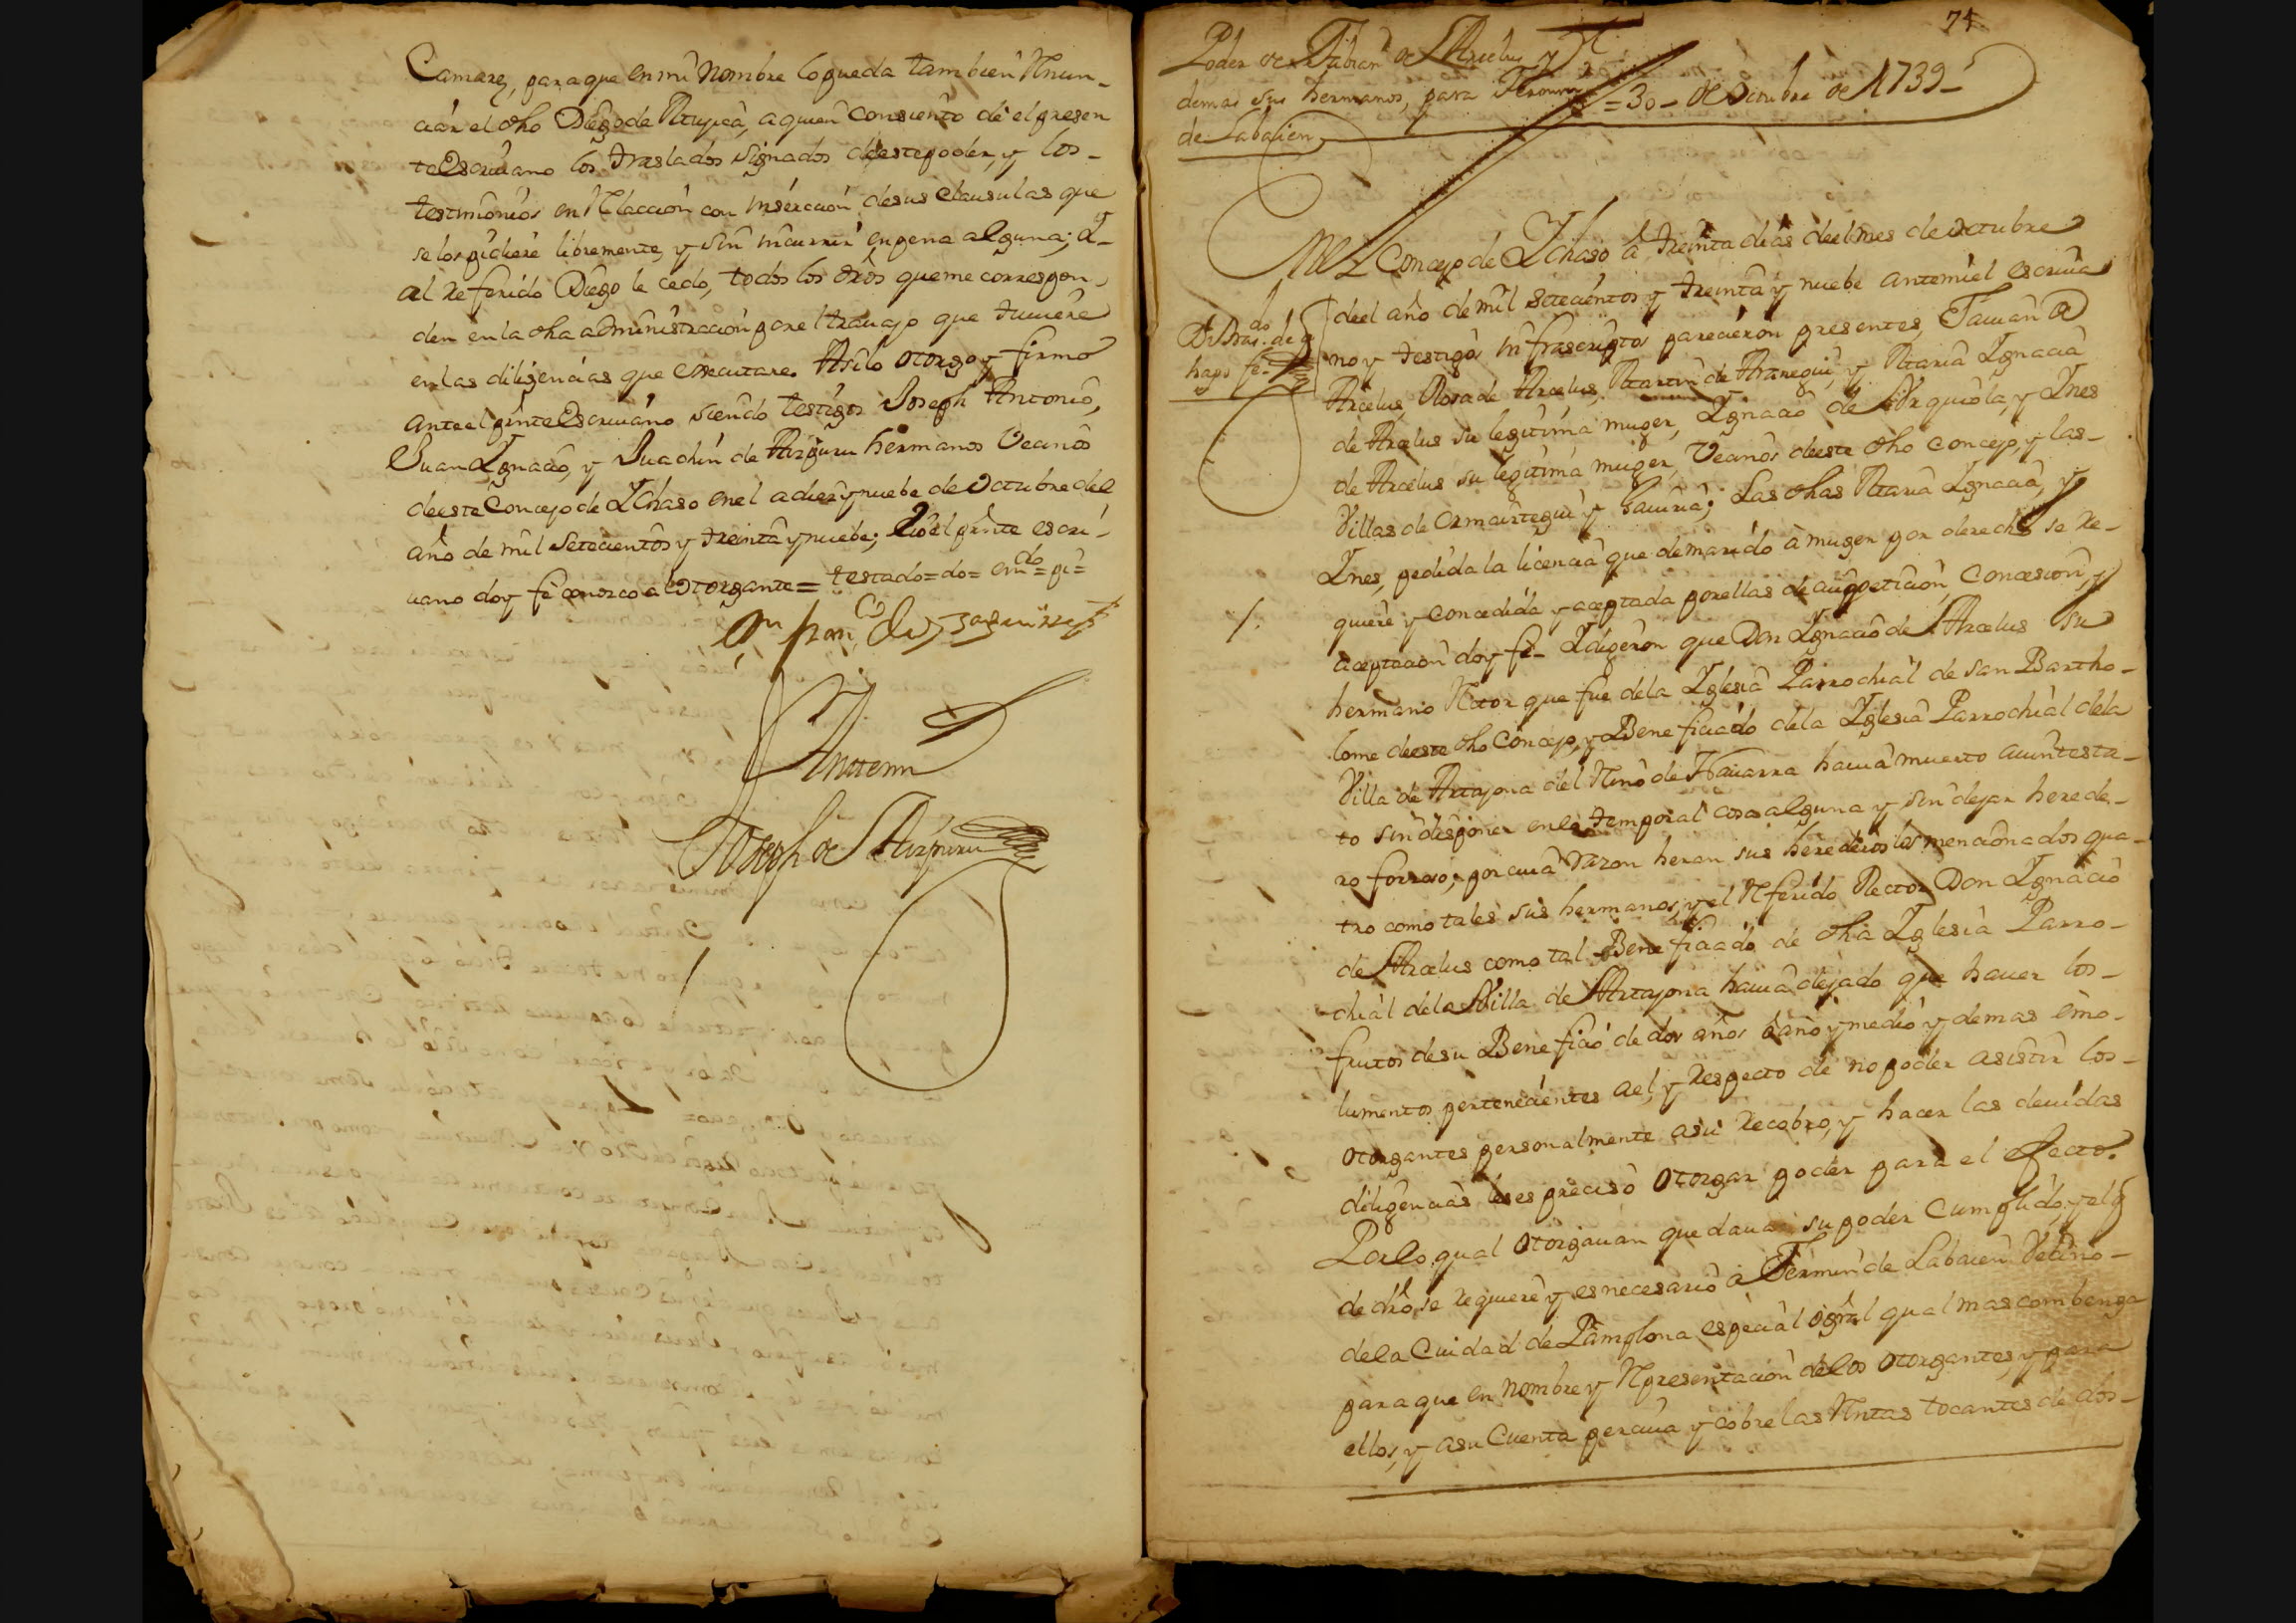 Camarą, para que en mi Nombre lo pueda tambien Renun-
ciar el dho Diego de Mugica, a quien Consiento dé el presen
te Escriuano los traslados Signados de este poder, y los-
testimonios en Relacion con insercion de sus Clausulas que
se los pidiere libremente, y sin incurrir en pena alguna; Y-
al Referido Diego le cedo, todos los drõs que me correspon-
den en la dha administracion por el trauajo que tuuiere
en las diligencias que executare. Assi lo otorgo y firmo
ante el pnte Escriuano siendo testigos Joseph Antonio,
Juan Ygnacio, y Juachin de Aizpuru hermanos Vecinos
de este Concejo de Ychaso en el a diez y nuebe de Octubre del
año de mil Setecientos y treinta y nuebe; e Yo el pnte escri-
uano doy fe conozco al Otorgante= testado=do= emdo=pi=
Ante mi
Joseph de Aizpuru
74
Poder de Fabian de Arcelus y
demas sus hermanos, para Fermin =30- de Octubre de 1739-
de Labaien
En el Concejo de Ychaso a treinta dias de el mes de octubre
de el año de mil setecientos y treinta y nuebe ante mi el escriua
no y testigos infrascriptos parecieron presentes, Fauian de
Arcelus, Rosa de Arcelus, Martin de Aranegui, y Maria Ygnacia
de Arcelus su legitima muger, Ygnacio de Vrquiola, y Ynes
de Arcelus su legitima muger, Vecinos de este dho Concejo, y las-
Villas de Ormaiztegui y Gauiria; Las dhas Maria Ygnacia, y
Ynes, pedida la licencia que de marido a muger por derecho se re-
quiere y concedida y aceptada por ellas de cuio peticion, Concesion, y
aceptacion doy fe- Y digeron que Don Ygnacio de Arcelus su
hermano Retor que fue de la Yglesia Parrochial de San Bartho-
lome de este dho Concejo, y Beneficiado de la Yglesia Parrochial de la
Villa de Artajona del Reino de Nauarra hauia muerto auintesta-
to sin disponer en lo temporal cosa alguna y sin dejar herede-
ro forzoso; por cuia razon heran sus herederos los mencionados qua-
tro como tales sus hermanos, y el Referido Rector Don Ygnacio
de Arcelus como tal Beneficiado de dha Yglesia Parro-
chial de la Villa de Artajona hauia dejado que hauer los-
frutos de su Beneficio de dos años o año y medio y demas emo-
lumentos pertenecientes a el, y respecto de no poder asistir los-
otorgantes personalmente a su recobro, y hacer las deuidas
diligencias les es preciso otorgar poder para el efecto.
Por lo qual otorgauan que dauan su poder Cumplido, y el q
de dro se requiere y es necesario a Fermin de Labaien Vecino-
de la Ciudad de Pamplona especial o gñral qual mas combenga
para que en nombre y Representacion de los otorgantes, y para
ellos, y a su Cuenta perciua y cobre las Rentas tocantes de dos-